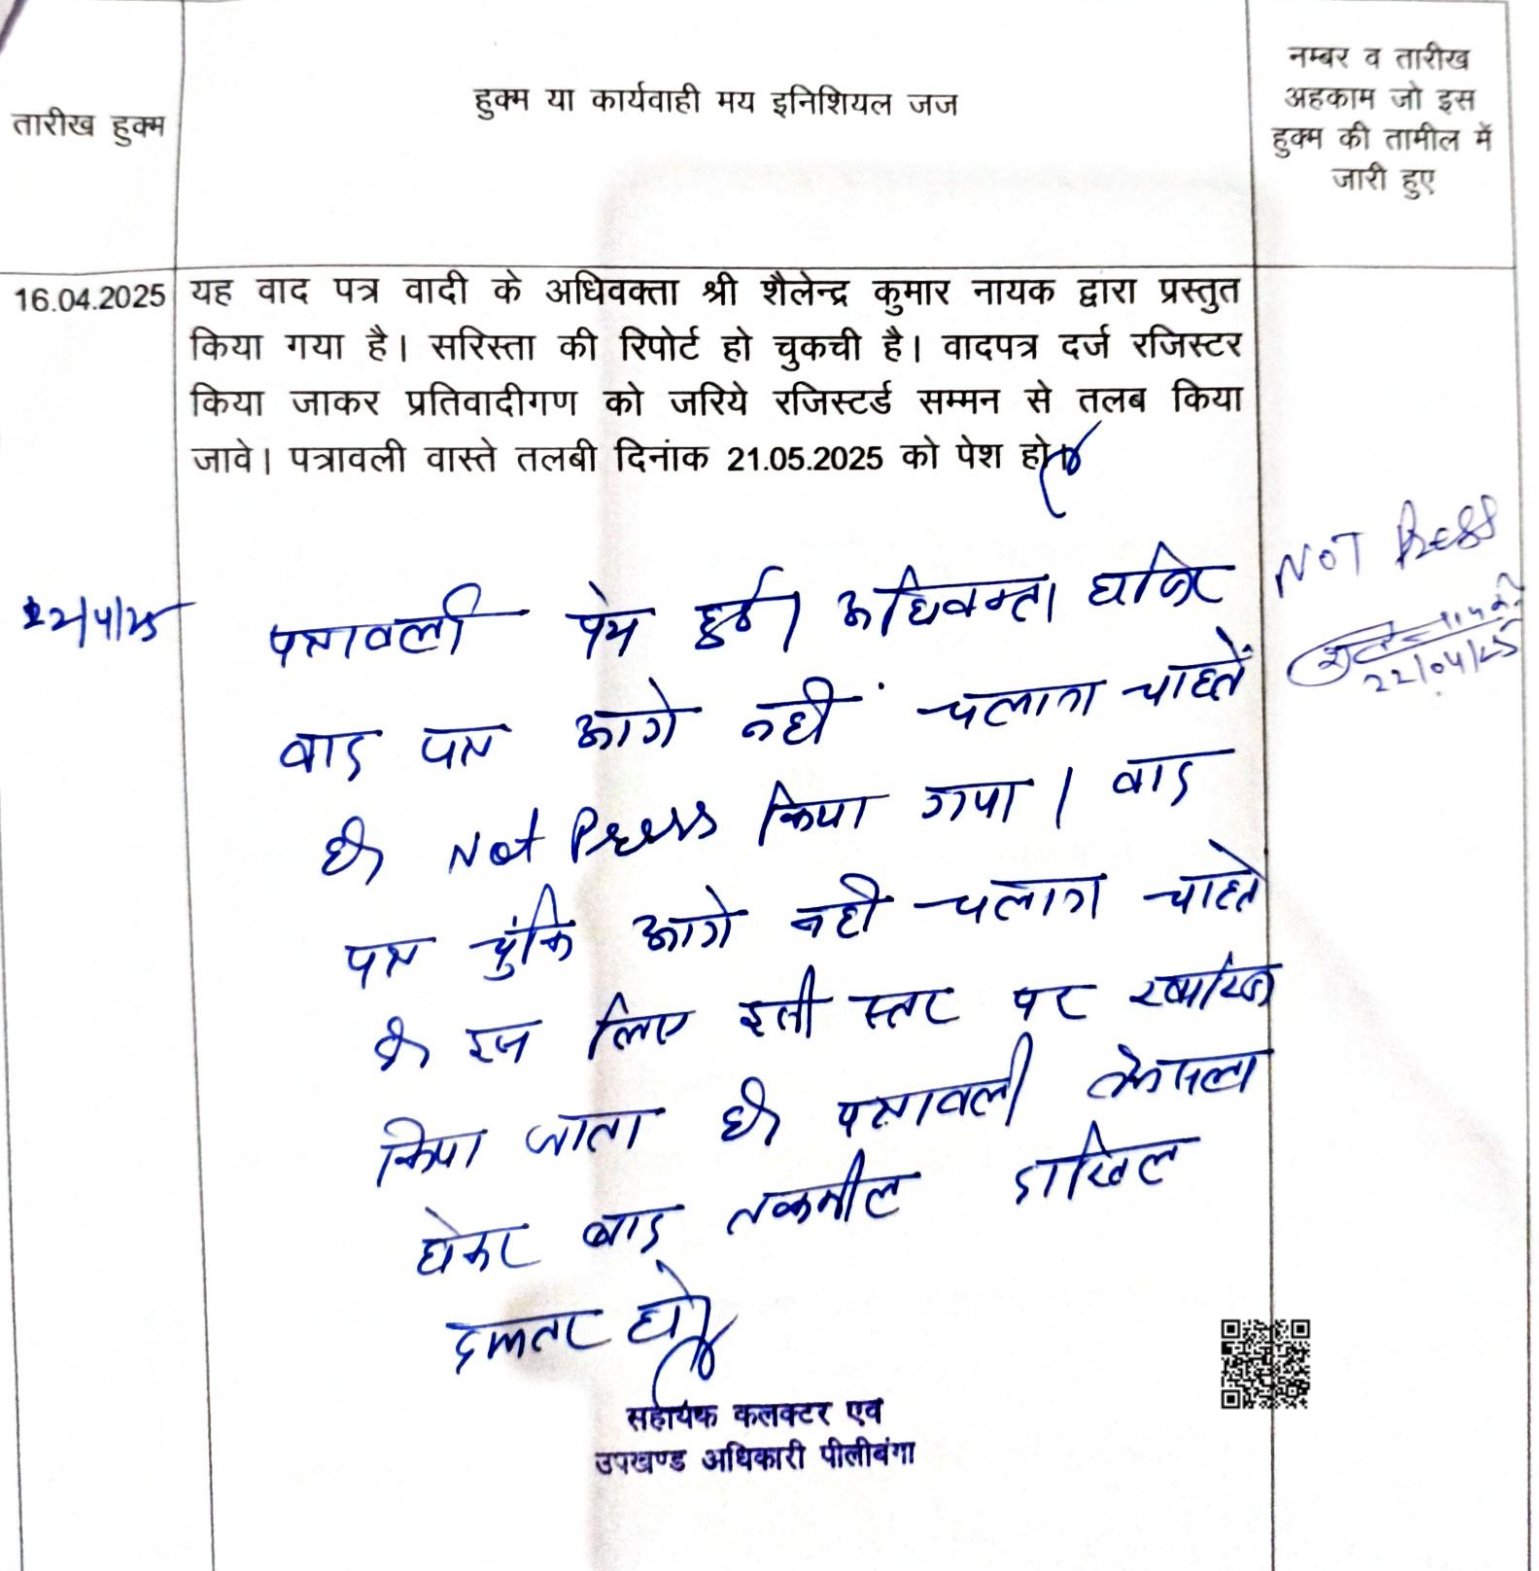 तारीख हुक्म
हुक्म या कार्यवाही मय इनिशियल जज
नम्बर व तारीख
अहकाम जो इस
हुक्म की तामील में
जारी हुए
16.04.2025
यह वाद पत्र वादी के अधिवक्ता श्री शैलेन्द्र कुमार नायक द्वारा प्रस्तुत
किया गया है। सरिस्ता की रिपोर्ट हो चुकची है। वादपत्र दर्ज रजिस्टर
किया जाकर प्रतिवादीगण को जरिये रजिस्टर्ड सम्मन से तलब किया
जावे। पत्रावली वास्ते तलबी दिनांक 21.05.2025 को पेश हो।
22/4/25
पत्रावली पेश हुई। अधिवक्ता हाजिर
वाद पत्र आगे नहीं चलाना चाहते
है Not Press किया गया। वाद
पत्र चुंकि आगे नही चलाना चाहते
है इस लिए इसी स्तर पर खारिज
किया जाता है पत्रावली फैसला
होकर बाद तकमील दाखिल
दफ्तर हो।
NOT Press
22/04/25
सहायक कलक्टर एव
उपखण्ड अधिकारी पीलीबंगा